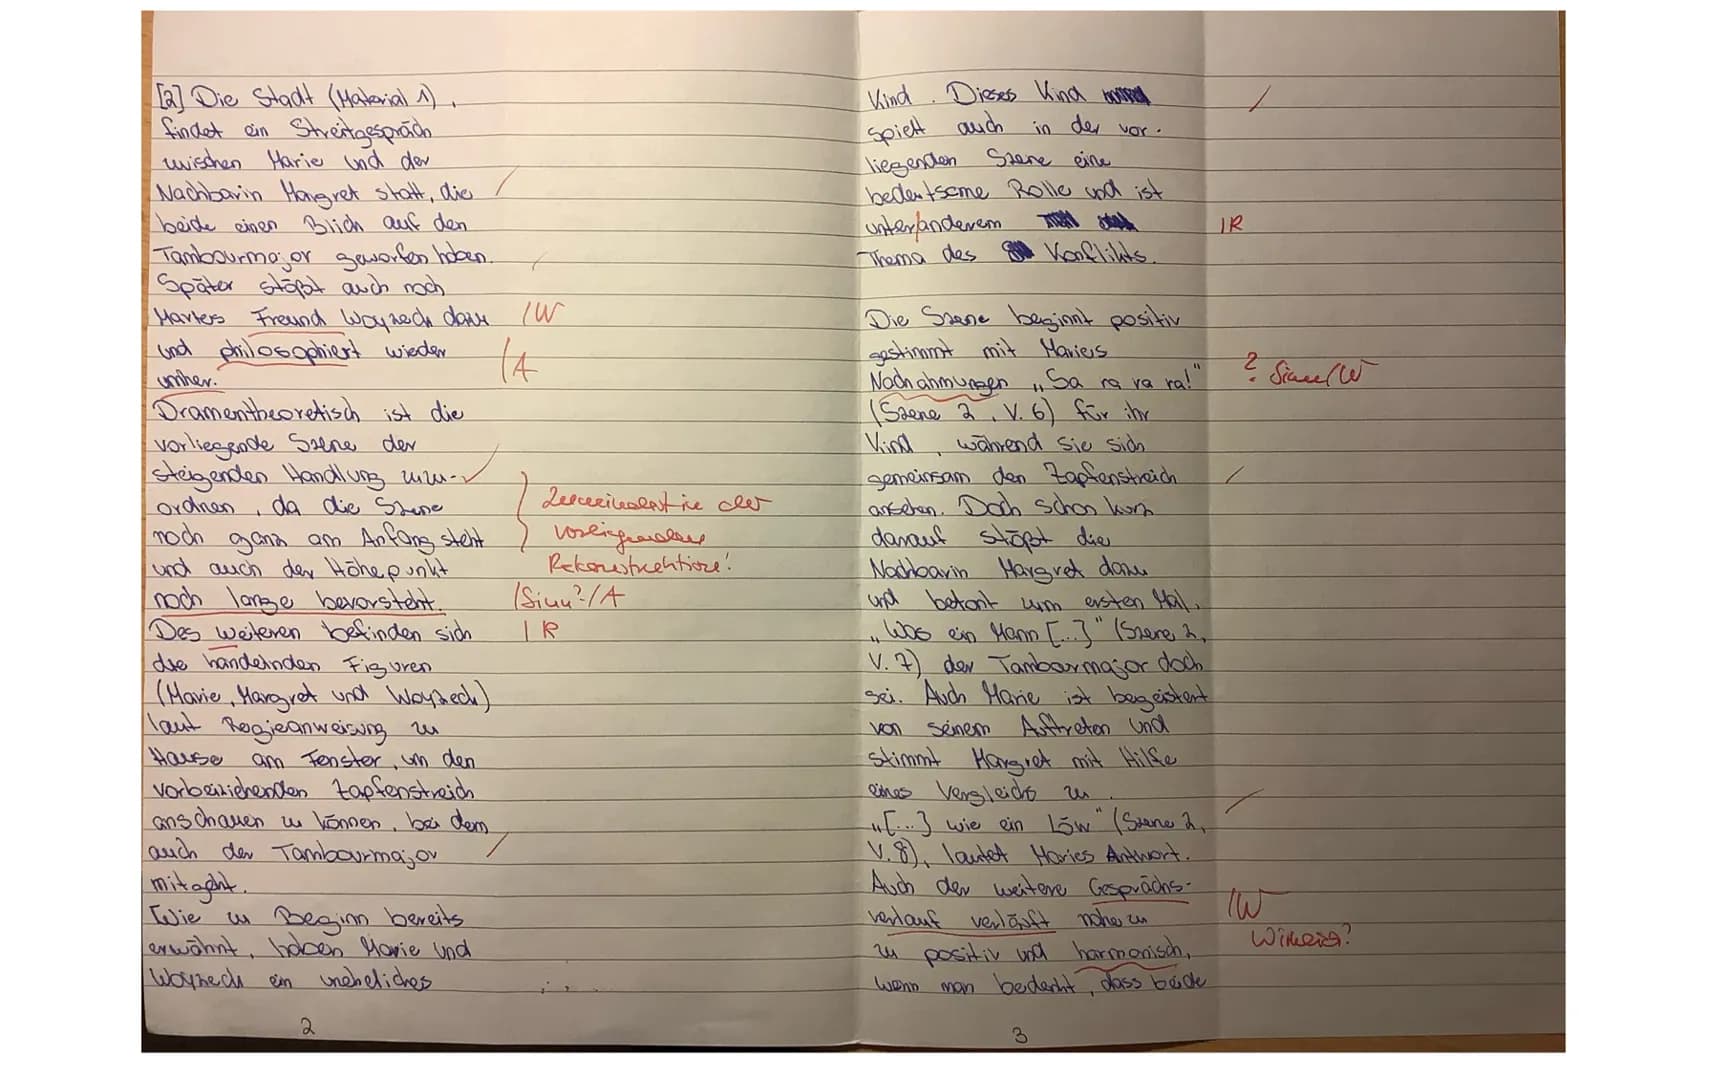 [2] Die Stadt (Material 1),
findet ein Streitgespräch
zwischen Marie und der
Nachbarin Margret statt, die
beide einen Blick auf den
Tambourmajor geworfen haben.
Später stößt auch noch
Maries Freund Woyzeck dazu
und philosophiert wieder
umher.
Dramentheoretisch ist die
vorliegende Szene der
steigenden Handlung zuzu-
ordnen, da die Szene
noch ganz am Anfang steht
und auch der Höhepunkt
noch lange bevorsteht.
Des weiteren befinden sich
die handelnden Figuren
(Marie, Margret und Woyzeck)
laut Regieanweisung zu
Hause am Fenster, um den
vorbeiziehenden Zapfenstreich
anschauen zu können, bei dem
auch der Tambourmajor
mitgeht.
Wie zu Beginn bereits
erwähnt, haben Marie und
Woyzeck ein uneheliches
2
/W
/A
Zumindest in der
vorliegenden
Rekonstruktion!
/Sinn?/A
/R
Kind. Dieses Kind
spielt auch in der vor-
liegenden Szene eine
bedeutsame Rolle und ist
unter/anderem
Thema des Konflikts.
Die Szene beginnt positiv
gestimmt mit Maries
Nachahmungen „Sa ra ra ra!"
(Szene 2, V. 6) für ihr
Kind, während sie sich
gemeinsam den Zapfenstreich
ansehen. Doch schon kurz
darauf stößt die
Nachbarin Margret dazu
und betont zum ersten Mal,
„Was ein Mann [...]" (Szene 2,
V. 7) der Tambormajor doch
sei. Auch Marie ist begeistert
von seinem Auftreten und
stimmt Margret mit Hilfe
eines Vergleichs zu.
„[...] wie ein Löw" (Szene 2,
V. 8), lautet Maries Antwort.
Auch der weitere Gesprächs-
verlauf verläuft nahe zu
zu positiv und harmonisch,
wenn man bedenkt, dass beide
3
/R
? Sinn/W
/W